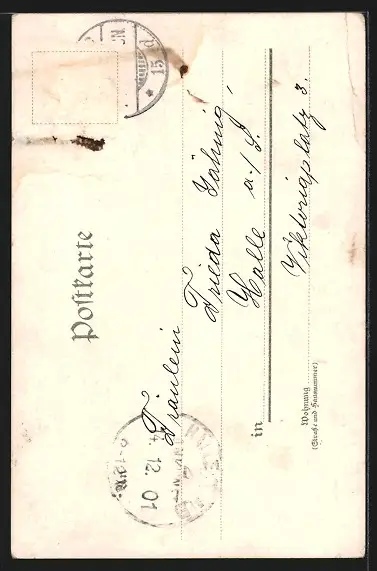 Postkarte
Fräulein
Frieda
Halle a./S.
in
Viktoriaplatz 3.
Wohnung
(Straße und Hausnummer)
15
12.01